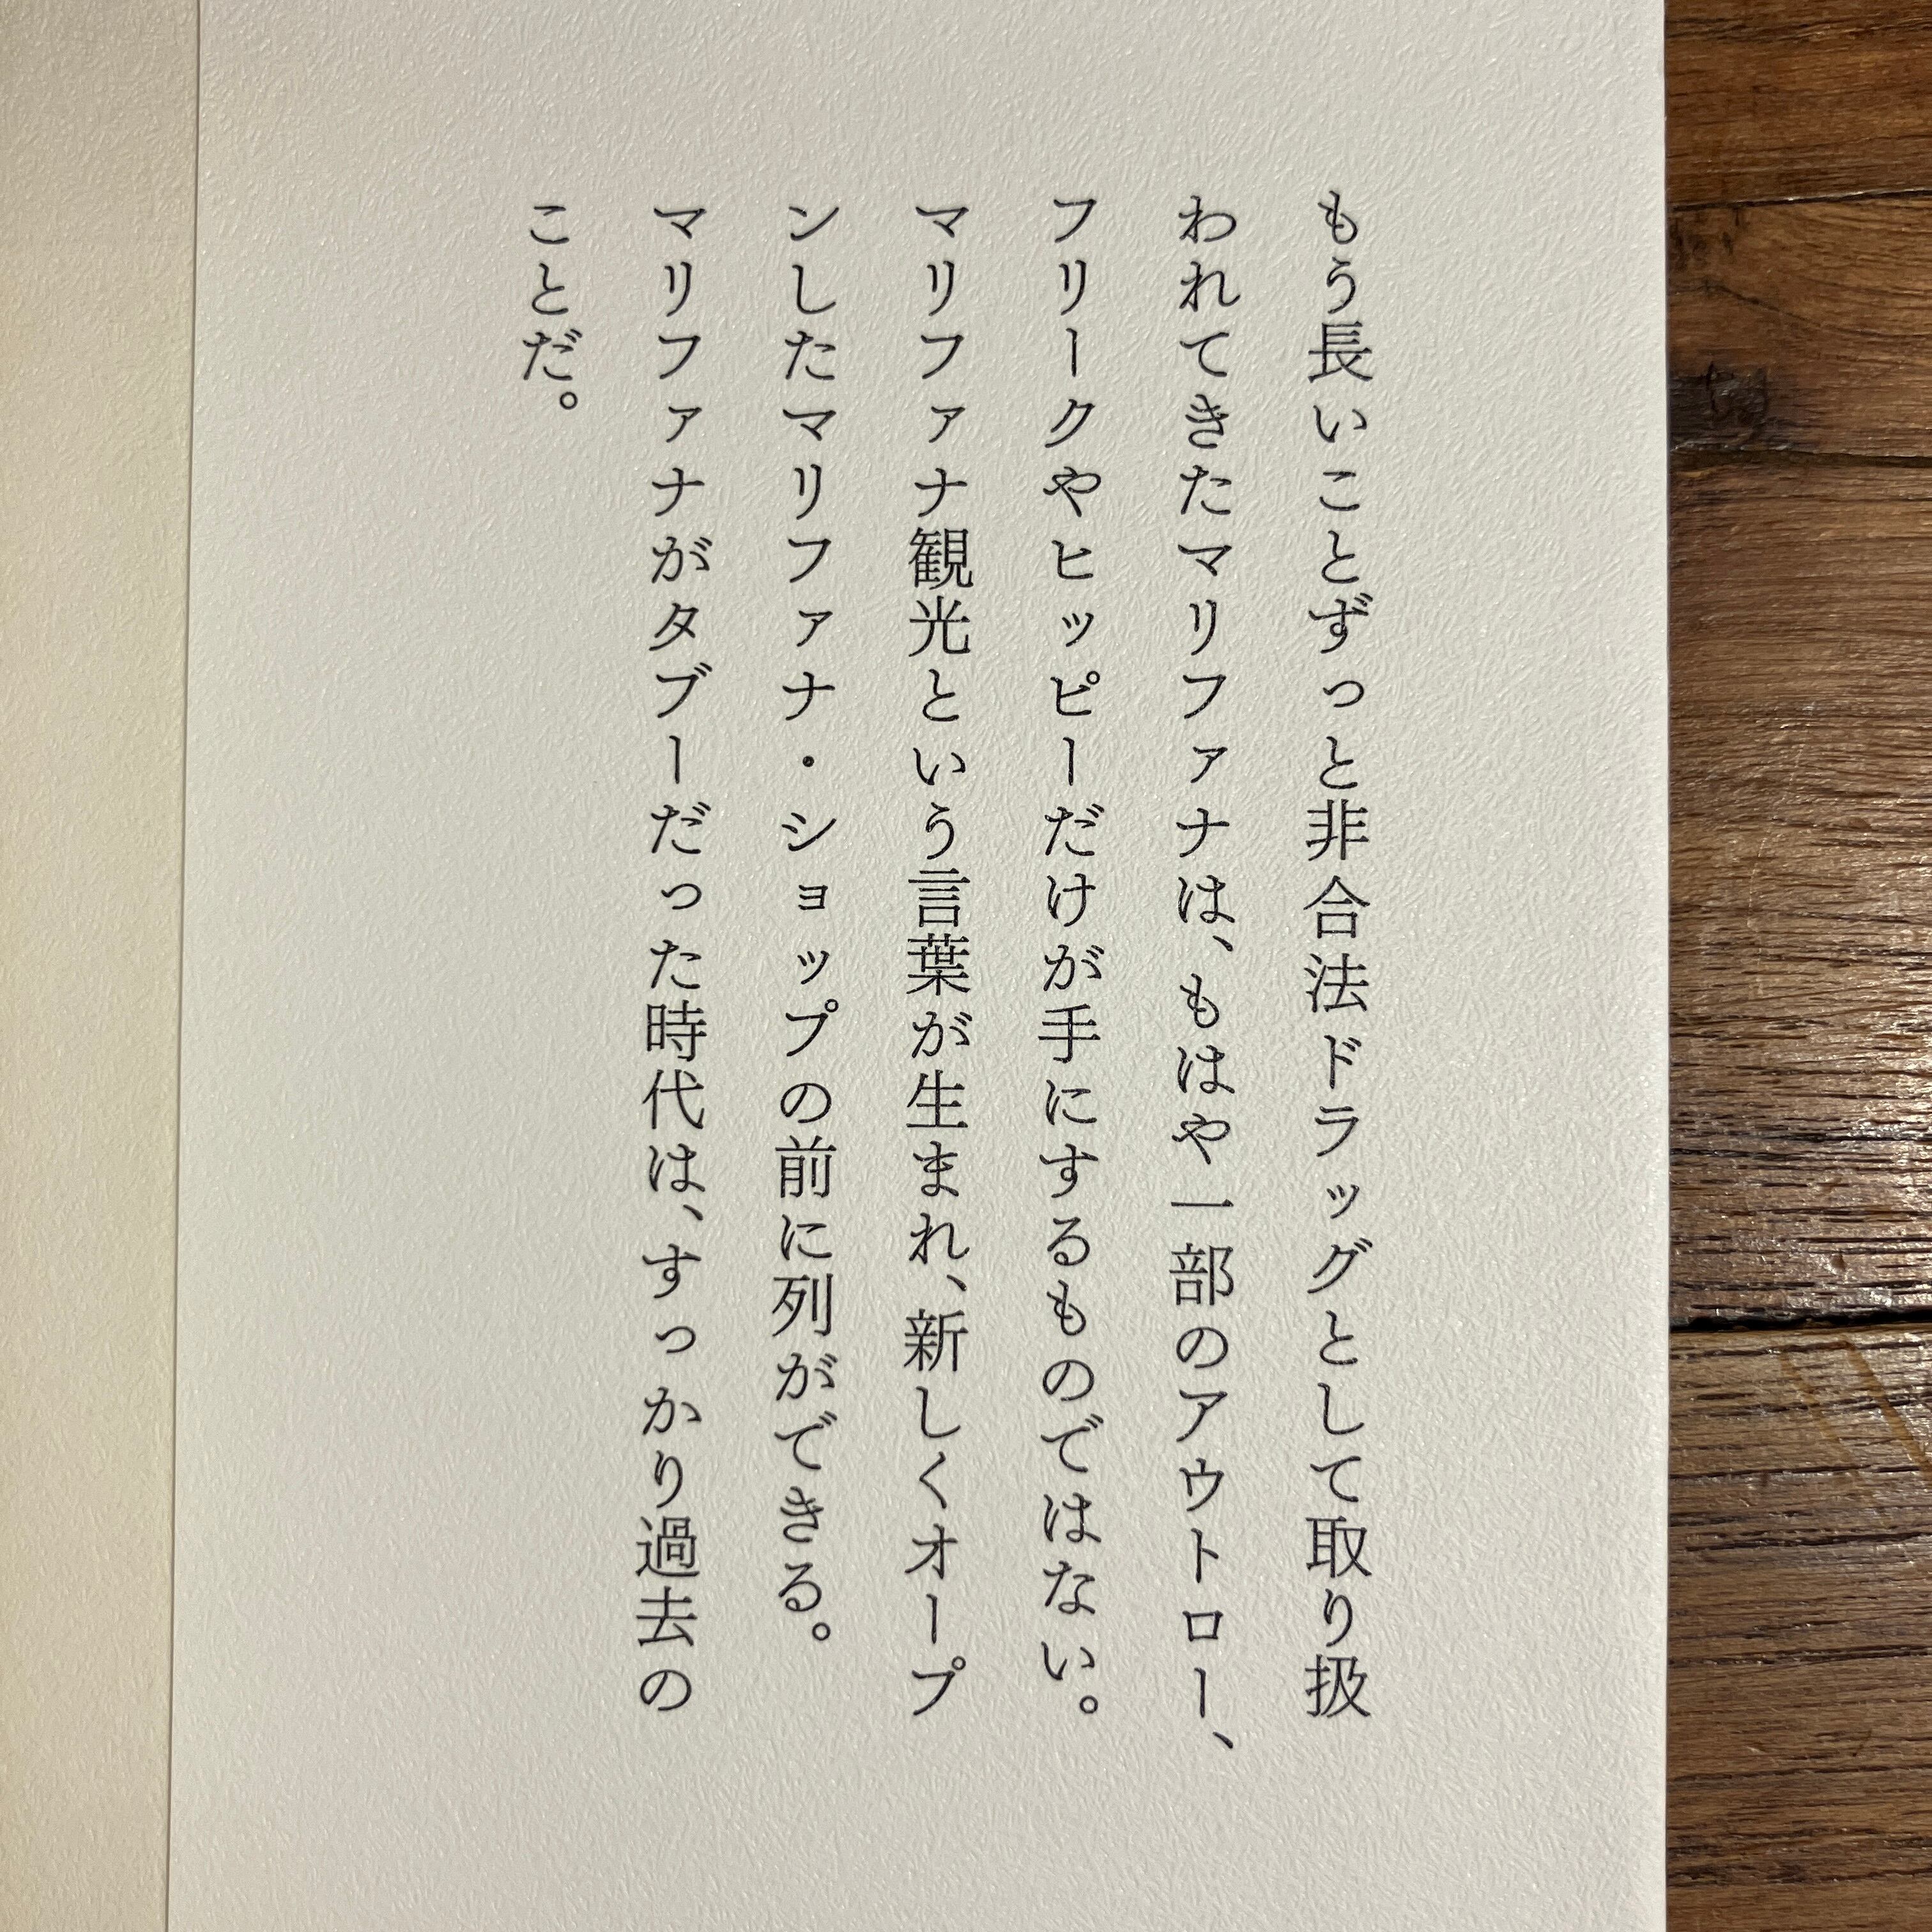 もう長いことずっと非合法ドラッグとして取り扱
われてきたマリファナは、もはや一部のアウトロー、
フリークやヒッピーだけが手にするものではない。
マリファナ観光という言葉が生まれ、新しくオープ
ンしたマリファナ・ショップの前に列ができる。
マリファナがタブーだった時代は、すっかり過去の
ことだ。